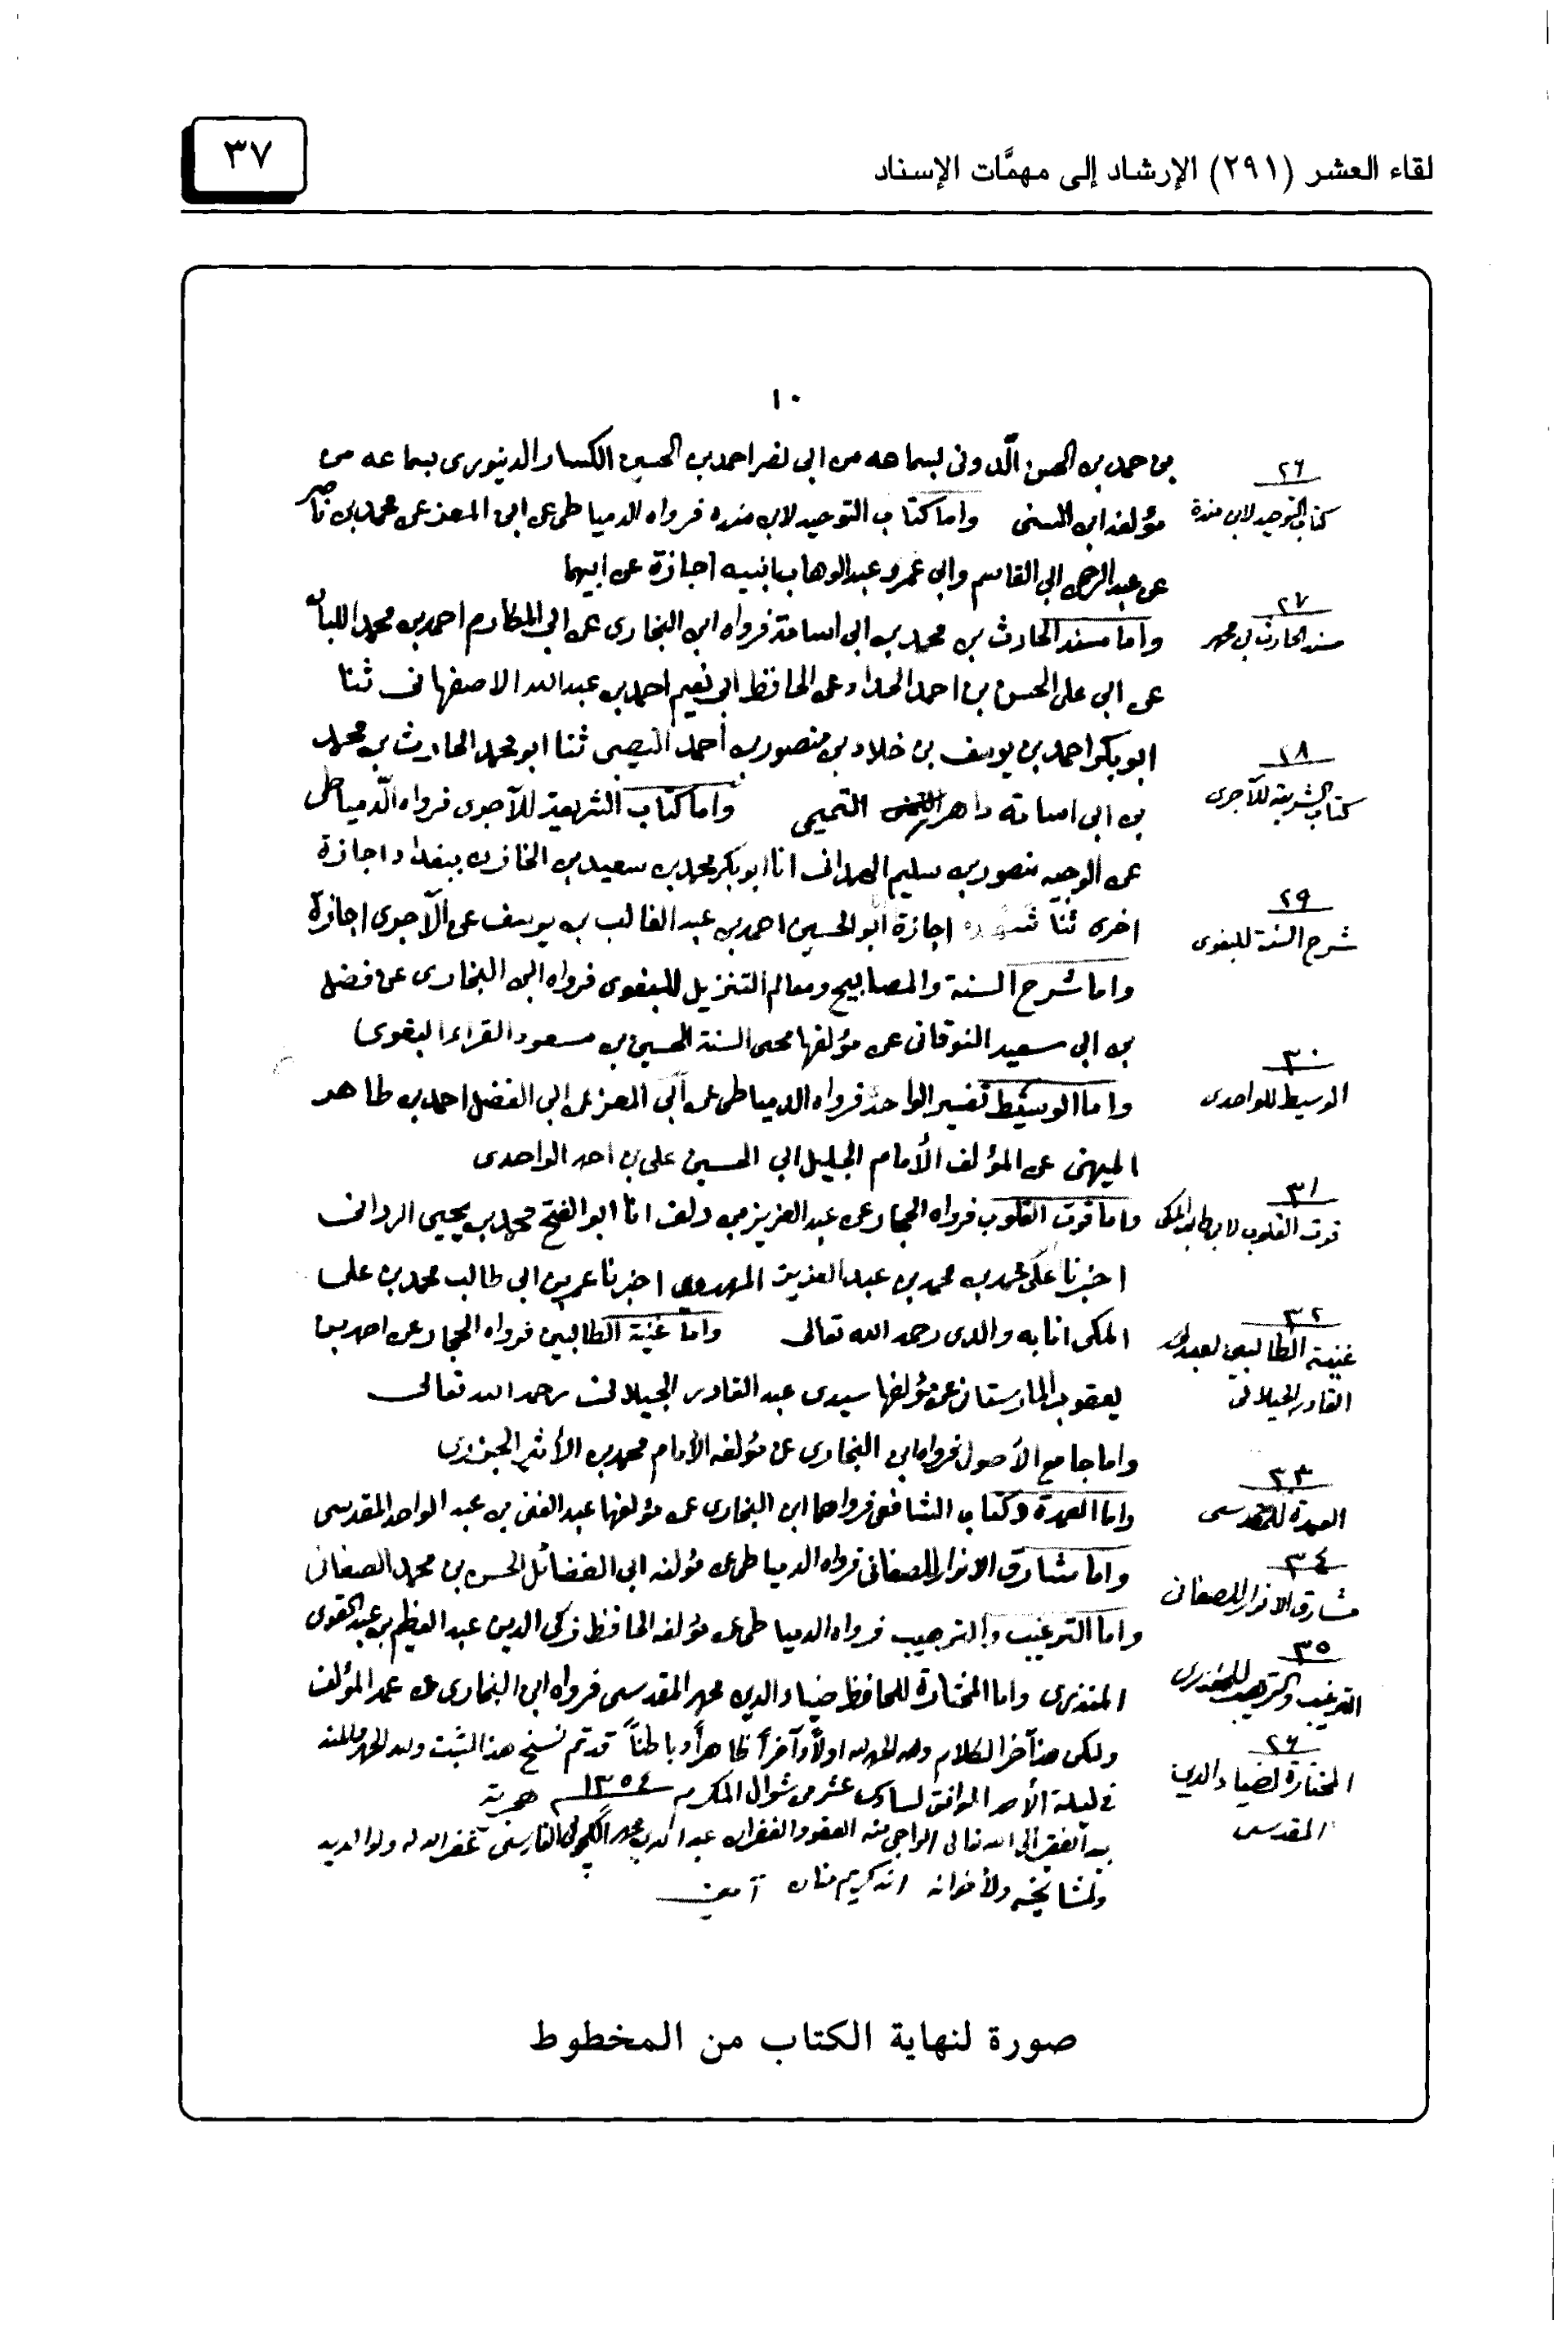 ٣٧
لقاء العشر (٢٩١) الإرشاد إلى مهمَّات الإسناد
١٠
بن حمد بن الحسن الدونى بسماعه من ابى نصر احمد بن الحسين الكسار الدينورى بسماعه من
٢٦
كتاب التوحيد لابن مندة
مؤلفه ابن السنى واما كتاب التوحيد لابن منده فرواه الدمياطى عن ابن المعز عن محمد بن ناصر
عن عبد الرحمن ابى القاسم وابى عمرو عبد الوهاب ابنيه اجازة عن ابيهما
٢٧
مسند الحارث بن محمد
واما مسند الحارث بن محمد بن ابى اسامة فرواه ابن البخارى عن ابى المكارم احمد بن محمد اللبان
عن ابى على الحسن بن احمد الحداد عن الحافظ ابى نعيم احمد بن عبد الله الاصفهانى ثنا
ابو بكر احمد بن يوسف بن خلاد بن منصور بن أحمد النصيبى ثنا ابو محمد الحارث بن محمد
٢٨
كتاب الشريعة للآجرى
بن ابى اسامة داهر التميمى واما كتاب الشريعة للآجرى فرواه الدمياطى
عن الوجيه منصور بن سليم الهمدانى انا ابو بكر محمد بن سعيد بن الخازن ببغداد اجازة
٢٩
شرح السنة للبغوى
اخرى ثنا شهده اجازة ابو الحسين احمد بن عبد الغالب بن يوسف عن الآجرى اجازة
واما شرح السنة والمصابيح ومعالم التنزيل للبغوى فرواه ابن البخارى عن فضل
بن ابى سعيد النوقانى عن مؤلفها محى السنة الحسين بن مسعود الفراء البغوى
٣٠
الوسيط للواحدى
واما الوسيط تفسير الواحدى فرواه الدمياطى عن أبى المعز عن ابى الفضل احمد بن طاهر
الميهنى عن المؤلف الأمام الجليل ابى الحسين على بن احمد الواحدى
٣١
قوت القلوب لابى طالب المكى
واما قوت القلوب فرواه الحجار عن عبد العزيز بن دلف انا ابو الفتح محمد بن يحيى البردانى
اخبرنا على محمد بن محمد بن عبد العزيز المهدوى اخبرنا عمر بن ابى طالب محمد بن على
٣٢
غنية الطالبين لعبد
القادر الجيلانى
المكى انا به والدى رحمه الله تعالى واما غنية الطالبين فرواه الحجار عن احمد بن
يعقوب المارستانى عن مؤلفها سيدى عبد القادر الجيلانى رحمه الله تعالى
واما جامع الأصول فرواه ابن البخارى عن مؤلفه الأمام محمد بن الأثير الجزرى
٣٣
العمدة للمقدسى
واما العمدة وكتاب الشافعى فرواهما ابن البخارى عن مؤلفها عبد الغنى بن عبد الواحد المقدسى
٣٤
مشارق الانوار للصغانى
واما مشارق الانوار للصغانى فرواه الدمياطى عن مؤلفه ابى الفضائل الحسن بن محمد الصغانى
واما الترغيب والترهيب فرواه الدمياطى عن مؤلفه الحافظ زكى الدين عبد العظيم بن عبد القوى
٣٥
الترغيب والترهيب للمنذرى
المنذرى واما المختارة للحافظ ضياء الدين محمد المقدسى فرواه ابن البخارى عن عمه المؤلف
٢٦
المختارة لضياء الدين
المقدسى
وليكن هذا آخر الكلام ولله الحمد اولاً وآخراً ظاهراً وباطناً قد تم نسخ هذا الثبت ولله الحمد والمنه
فى ليلة الأحد الموافق لسادس عشر من شوال المكرم ١٣٥٤ هجرية
بيد الفقير الى الله تعالى الراجى منه العفو والغفران عبد الله بن محمد الفارسى غفر الله له ولوالديه
ولمشائخه ولأخوانه انه كريم منان آمين
صورة لنهاية الكتاب من المخطوط